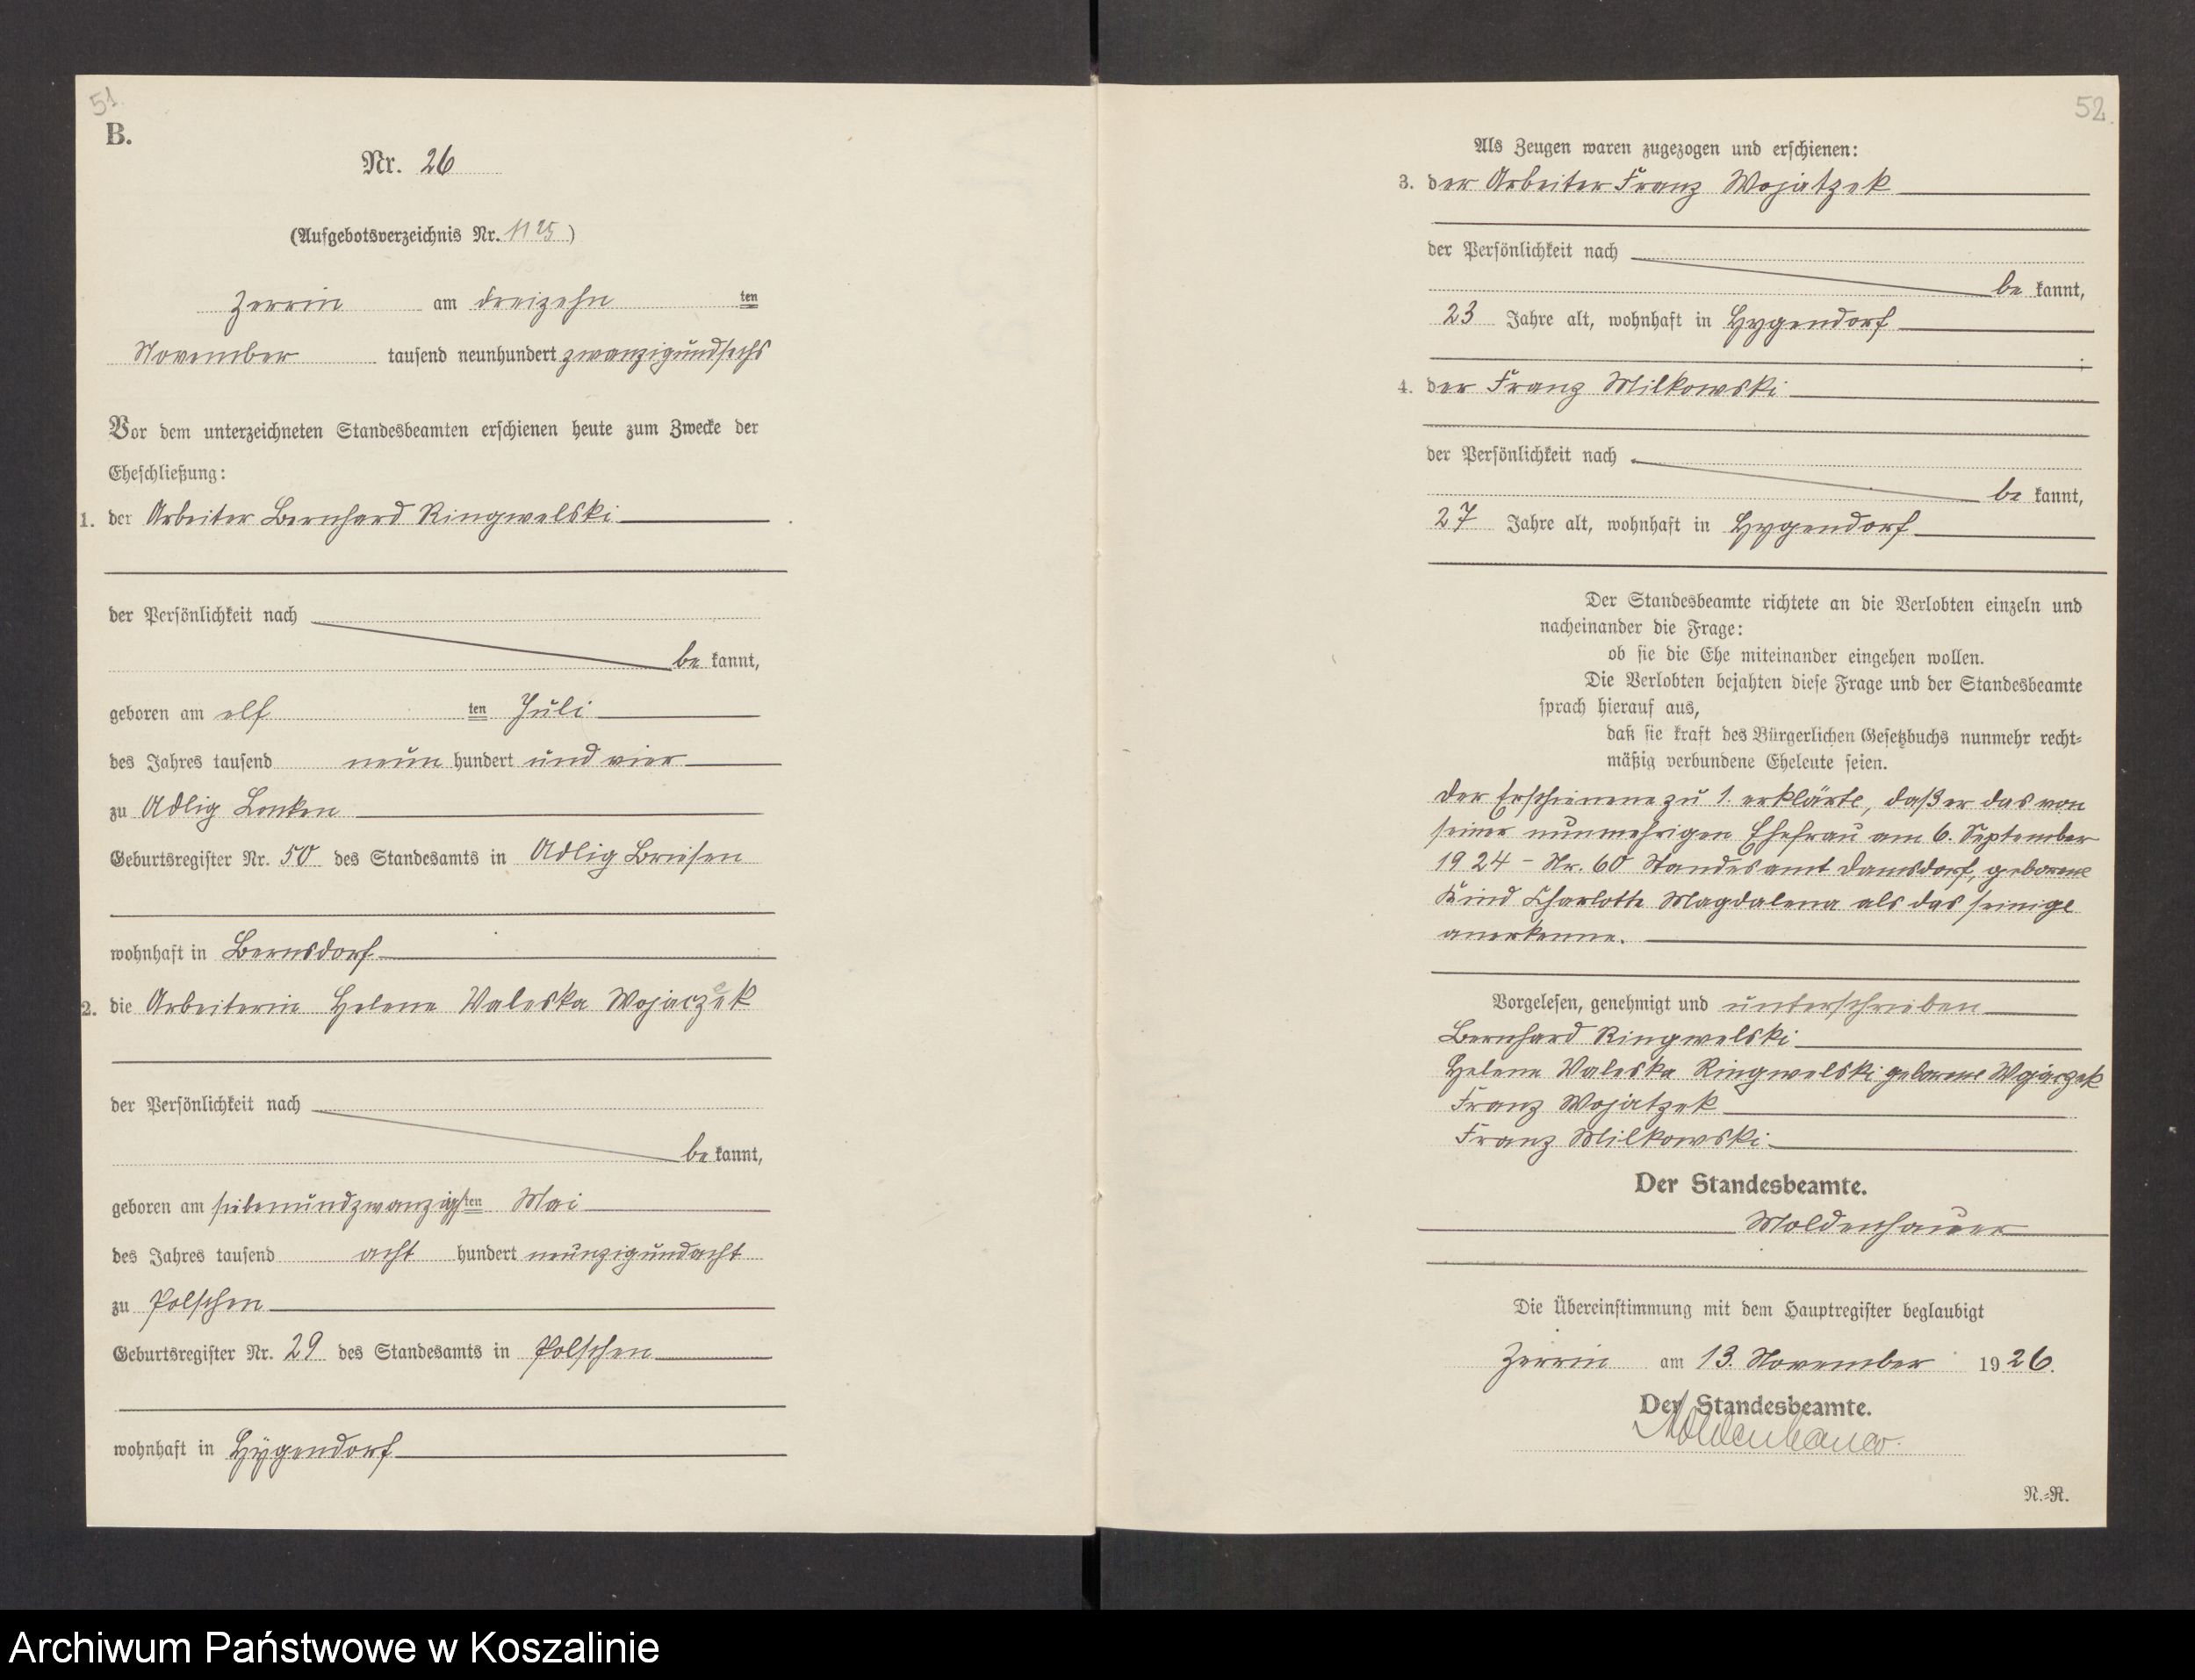 51
B.
Nr. 26
(Aufgebotsverzeichnis Nr. )
Zerrin am dreizehn ten
November tausend neunhundert zwanzigundsechs
Vor dem unterzeichneten Standesbeamten erschienen heute zum Zwecke der
Eheschließung:
1. der Arbeiter Bernhard Ringwelski
der Persönlichkeit nach
be kannt,
geboren am elf ten Juli
des Jahres tausend neun hundert und vier
zu Adlig Lonken
Geburtsregister Nr. 50 des Standesamts in Adlig Briesen
wohnhaft in Bernsdorf
2. die Arbeiterin Helene Valeska Wojaczek
der Persönlichkeit nach
be kannt,
geboren am siebenundzwanzigsten Mai
des Jahres tausend acht hundert neunzigundacht
zu Polschen
Geburtsregister Nr. 29 des Standesamts in Polschen
wohnhaft in Hygendorf
52.
Als Zeugen waren zugezogen und erschienen:
3. der Arbeiter Franz Wojatzek
der Persönlichkeit nach
be kannt,
23 Jahre alt, wohnhaft in Hygendorf
;
4. der Franz Milkowski
der Persönlichkeit nach
be kannt,
27 Jahre alt, wohnhaft in Hygendorf
Der Standesbeamte richtete an die Verlobten einzeln und
nacheinander die Frage:
ob sie die Ehe miteinander eingehen wollen.
Die Verlobten bejahten diese Frage und der Standesbeamte
sprach hierauf aus,
daß sie kraft des Bürgerlichen Gesetzbuchs nunmehr recht-
mäßig verbundene Eheleute seien.
Der Erschienene zu 1. erklärte, daß er das von
seiner nunmehrigen Ehefrau am 6. September
1924 - Nr. 60 Standesamt Damsdorf, geborene
Kind Charlotte Magdalena als das seinige
anerkenne.
Vorgelesen, genehmigt und unterschrieben
Bernhard Ringwelski
Helene Valeska Ringwelski geborene Wojaczek
Franz Wojatzek
Franz Milkowski
Der Standesbeamte.
Moldenhauer
Die Übereinstimmung mit dem Hauptregister beglaubigt
Zerrin am 13. November 1926.
Der Standesbeamte.
Moldenhauer.
N.-R.
Archiwum Państwowe w Koszalinie